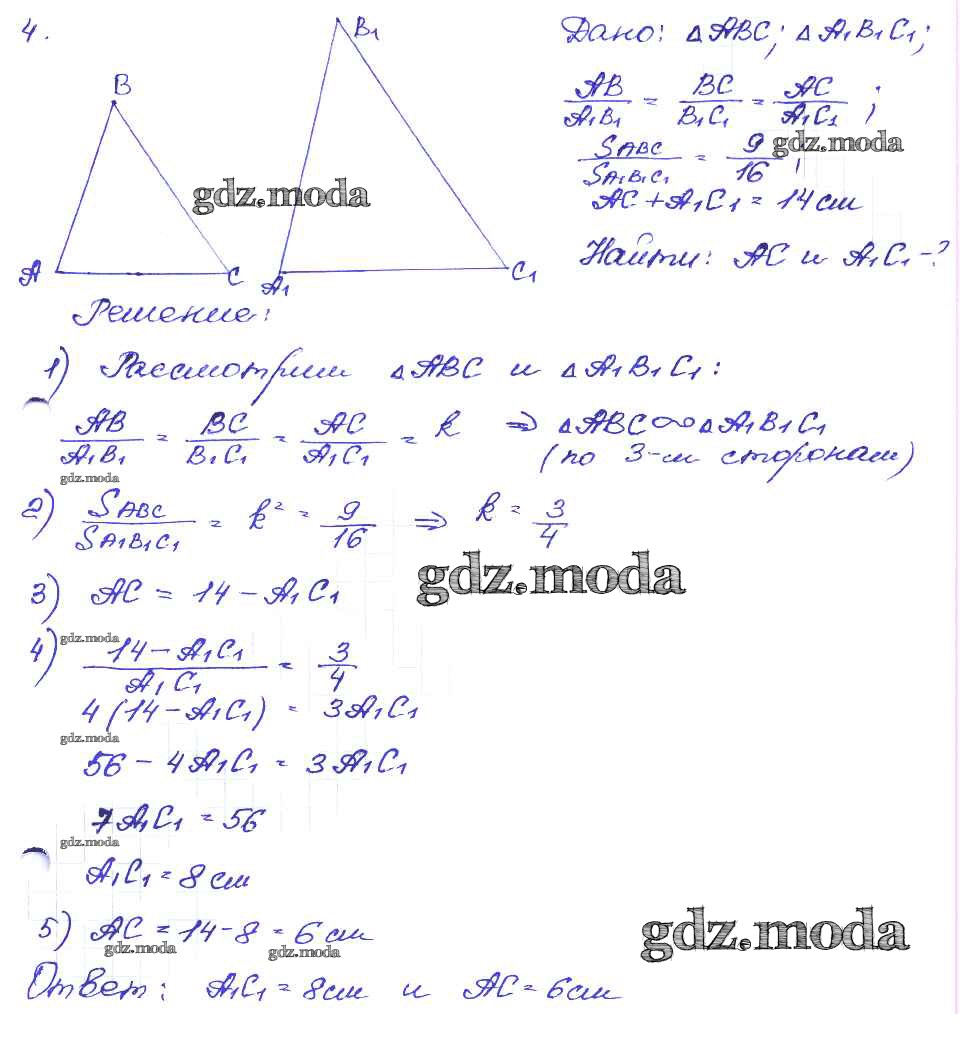 4.
B
B₁
A
C
A₁
C₁
Дано: △ABC; △A₁B₁C₁;
AB/A₁B₁ = BC/B₁C₁ = AC/A₁C₁;
S ABC/S A₁B₁C₁ = 9/16;
AC + A₁C₁ = 14 см
Найти: AC и A₁C₁ - ?
gdz.moda
gdz.moda
Решение:
1) Рассмотрим △ABC и △A₁B₁C₁:
AB/A₁B₁ = BC/B₁C₁ = AC/A₁C₁ = k ⇒ △ABC ∾ △A₁B₁C₁
(по 3-м сторонам)
gdz.moda
2) S ABC/S A₁B₁C₁ = k² = 9/16 ⇒ k = 3/4
3) AC = 14 - A₁C₁
gdz.moda
gdz.moda
4) 14 - A₁C₁/A₁C₁ = 3/4
4(14 - A₁C₁) = 3A₁C₁
gdz.moda
56 - 4A₁C₁ = 3A₁C₁
7A₁C₁ = 56
gdz.moda
A₁C₁ = 8 см
5) AC = 14 - 8 = 6 см
gdz.moda
gdz.moda
gdz.moda
Ответ: A₁C₁ = 8см и AC = 6см